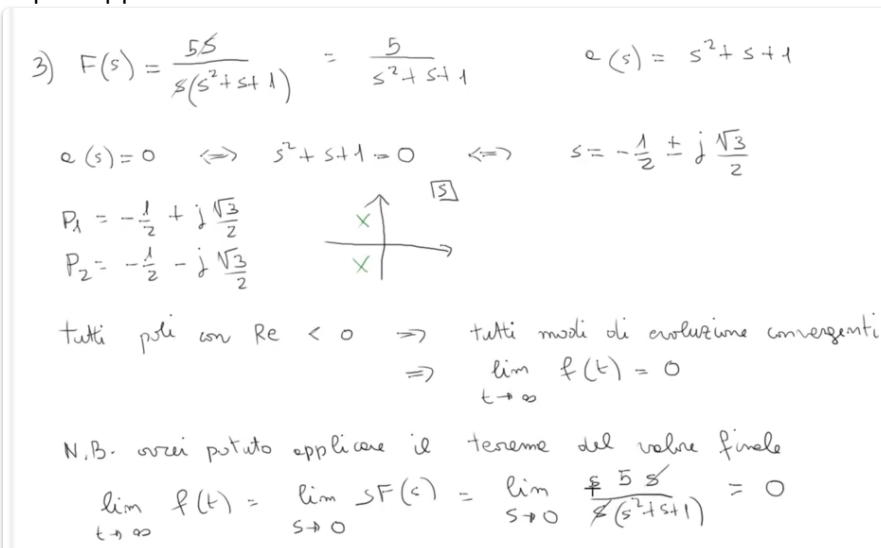 3) F(s) = 5s / s(s²+s+1) = 5 / s²+s+1    a(s) = s²+s+1
a(s)=0 <=> s²+s+1=0 <=> s = -1/2 ± j √3/2
P₁ = -1/2 + j √3/2
[s]
P₂ = -1/2 - j √3/2
tutti poli con Re < 0 => tutti modi di evoluzione convergenti
=> lim t→∞ f(t) = 0
N.B. avrei potuto applicare il teorema del valore finale
lim t→∞ f(t) = lim s→0 sF(s) = lim s→0 5 s / s(s²+s+1) = 0